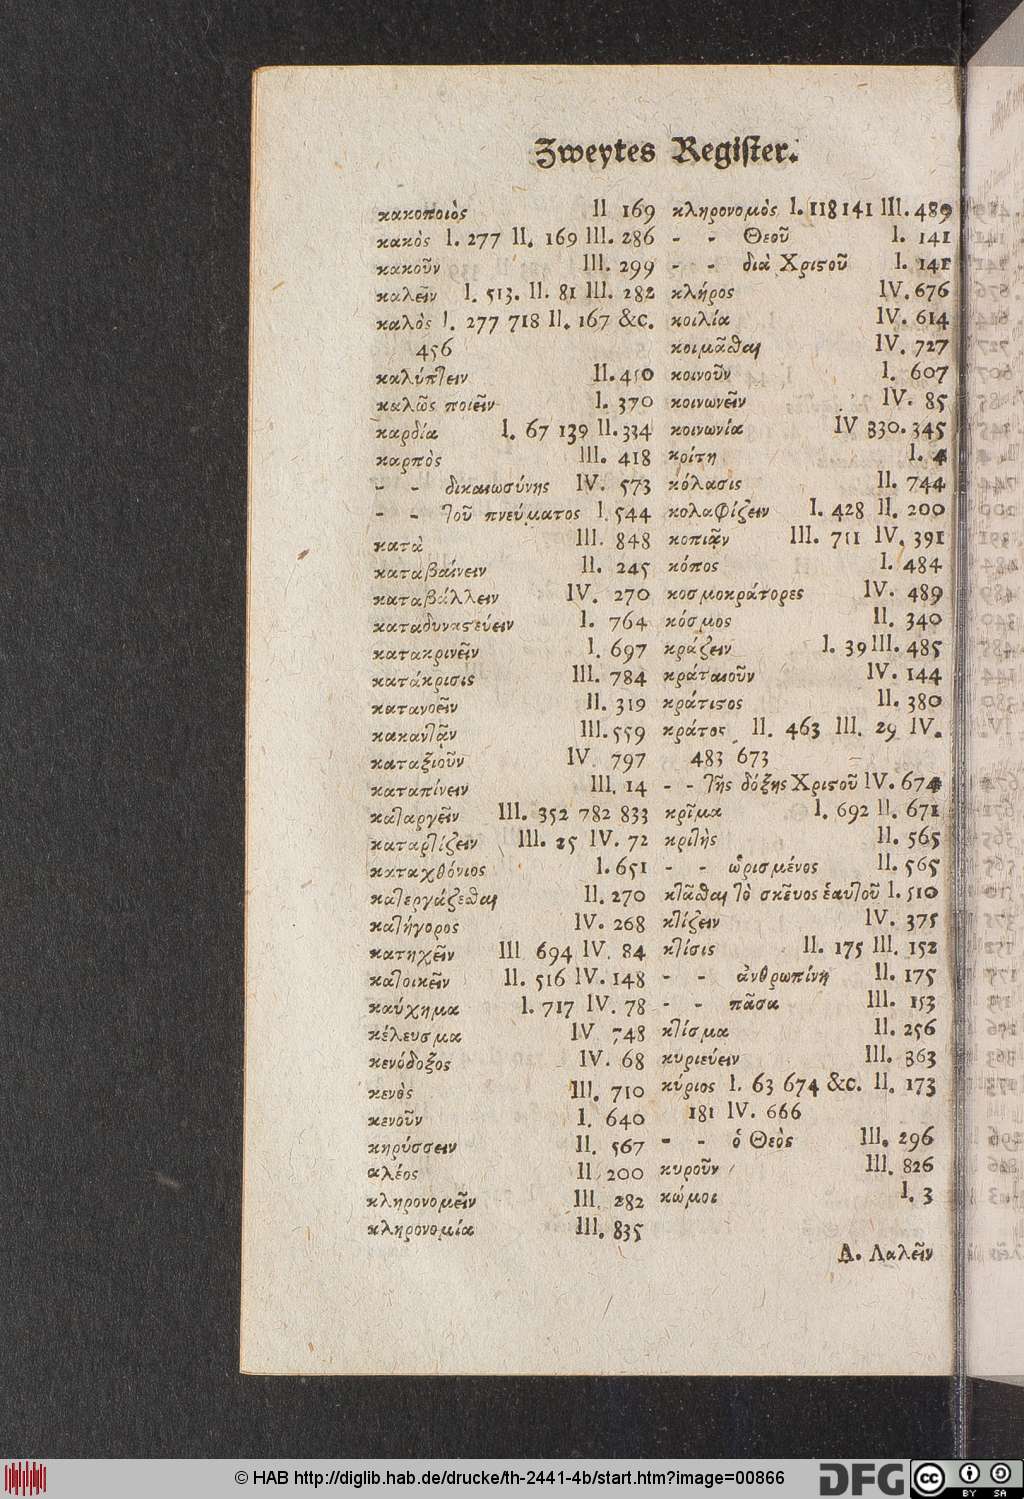 Zweytes Regiſter.
κακοποιὸς II 169
κακὸς I. 277 II. 169 III. 286
κακοῦν III. 299
καλεῖν I. 513. II. 81 III. 282
καλὸς I. 277 718 II. 167 &c.
456
καλύπτειν II. 450
καλῶς ποιεῖν I. 370
καρδία I. 67 139 II. 334
καρπὸς III. 418
- - δικαιωσύνης IV. 573
- - τοῦ πνεύματος I. 544
κατὰ III. 848
καταβαίνειν II. 245
καταβάλλειν IV. 270
καταδυναϛεύειν I. 764
κατακρινεῖν I. 697
κατάκρισις III. 784
κατανοεῖν II. 319
κακαντᾷν III. 559
καταξιοῦν IV 797
καταπίνειν III. 14
καταργεῖν III. 352 782 833
καταρτίζειν III. 25 IV. 72
καταχθόνιος I. 651
κατεργάζεσθαι II. 270
κατήγορος IV. 268
κατηχεῖν III 694 IV. 84
κατοικεῖν II. 516 IV. 148
καύχημα I. 717 IV. 78
κέλευσμα IV 748
κενόδοξος IV. 68
κενὸς III. 710
κενοῦν I. 640
κηρύσσειν II. 567
αλέος II 200
κληρονομεῖν III. 282
κληρονομία III. 835
κληρονομὸς I. 118 141 III. 489
- - Θεοῦ I. 141
- - διὰ Χριϛοῦ I. 141
κλήρος IV. 676
κοιλία IV. 614
κοιμᾶσθαι IV. 727
κοινοῦν I. 607
κοινωνεῖν IV. 85
κοινωνία IV 330. 345
κοίτη I. 4
κόλασις II. 744
κολαφίζειν I. 428 II. 200
κοπιᾷν III. 711 IV. 391
κόπος I. 484
κοσμοκράτορες IV. 489
κόσμος II. 340
κράζειν I. 39 III. 485
κράταιοῦν IV. 144
κράτιϛος II. 380
κράτος II. 463 III. 29 IV.
483 673
- - τῆς δόξης Χριϛοῦ IV. 674
κρῖμα I. 692 II. 671
κριτὴς II. 565
- - ὡρισμένος II. 565
κτᾶσθαι τὸ σκεῦος ἑαυτοῦ I. 510
κτίζειν IV. 375
κτίσις II. 175 III. 152
- - ἀνθρωπίνη II. 175
- - πᾶσα III. 153
κτίσμα II. 256
κυριεύειν III. 363
κύριος I. 63 674 &c. II. 173
181 IV. 666
- - ὁ Θεὸς III. 296
κυροῦν III. 826
κώμοι I. 3
Λ. Λαλεῖν
© HAB http://diglib.hab.de/drucke/th-2441-4b/start.htm?image=00866
DFG
cc BY SA